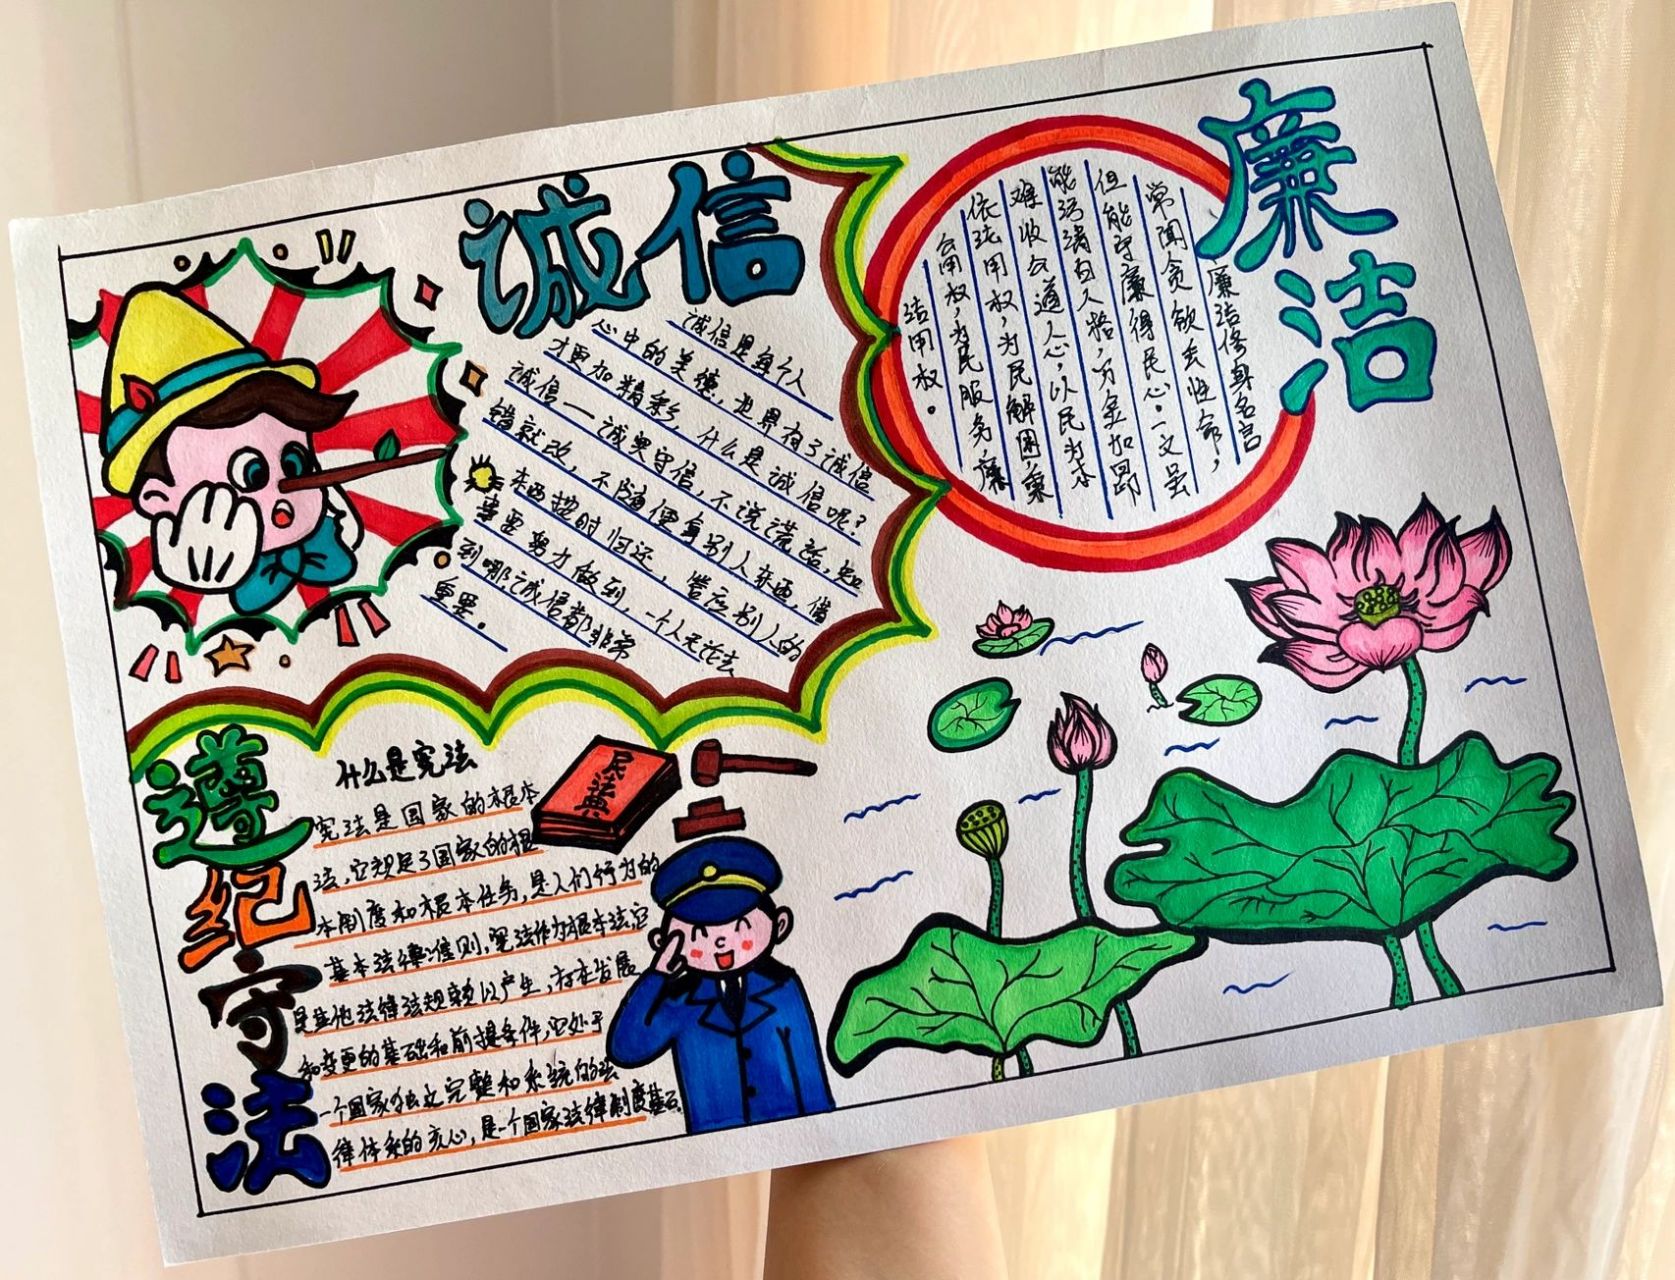 诚信
诚信是每个人
心中的美德,世界有了诚信
才更加精彩,什么是诚信呢?
诚信一诚实守信,不说谎话,知
错就改,不随便拿别人东西,借
东西按时归还,答应别人的
事要努力做到,一个人无论去
到哪诚信都非常
重要。
廉洁
廉洁修身名言
常闻贪欲丢性命,
但能守廉得民心。一文呈
能污清白人格,万金加
难收公道人心,以民为本
依法用权,为民解困,秉
公用权,为民服务,廉
洁用权。
遵纪守法
什么是宪法
宪法是国家的根本
法,它规定了国家的根
本制度和根本任务,是人们行为的
基本法律准则,宪法作为根本法它
是其他法律法规赖以产生,存在发展
和变更的基础和前提条件,它处于
一个国家独立完整和系统的法
律体系的核心,是一个国家法律制度基石
民法典